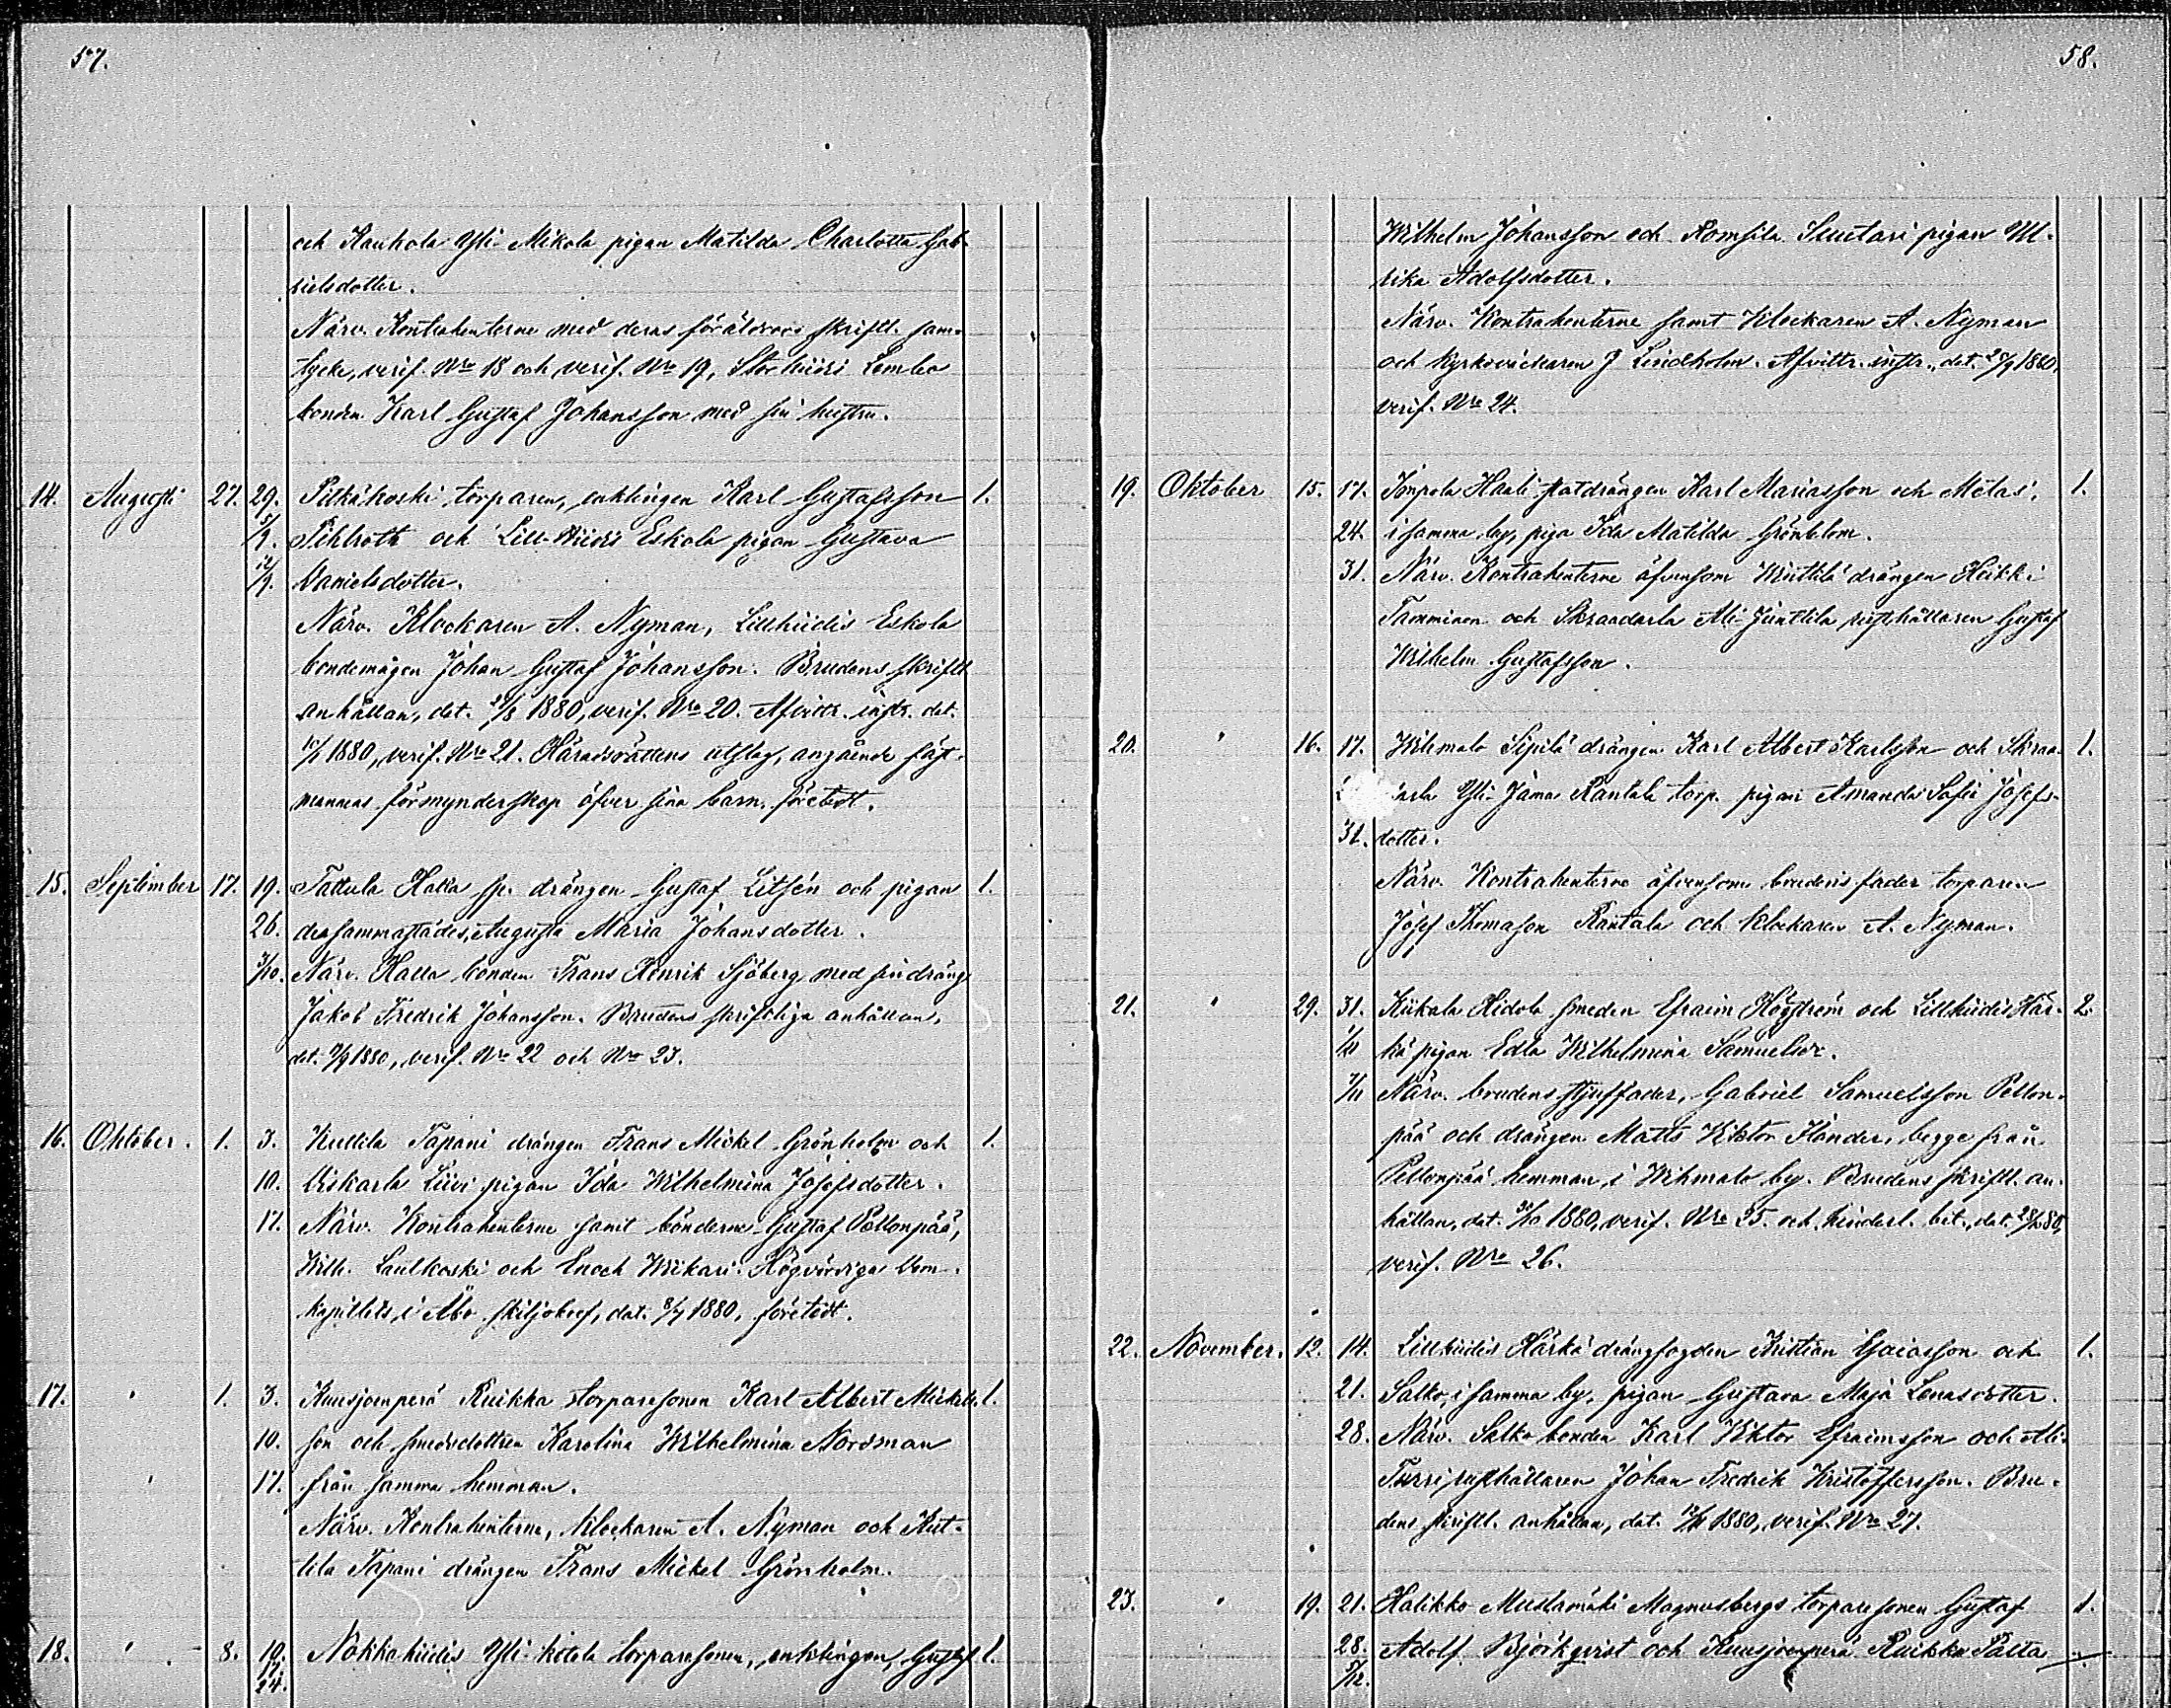 57.
och Kauhola Yli-Mikola pigan Matilda Charlotta Gab-
rielsdotter.
Närv. Kontrahenterne med deras föräldrars skriftl. sam-
tycke, verif. Nro 18 och verif. Nro 19, Storhiidis Lembo
bonden Karl Gustaf Johansson med sin hustru.
14. Augusti 27. 29. Pitkäkoski torparen, enklingen Karl Gustafsson 1.
5/9. Pihlroth och Lill-Hiidis Eskola pigan Gustava
12/9. Danielsdotter.
Närv. Klockaren A. Nyman, Lillhiidis Eskola
bondemågen Johan Gustaf Johansson. Brudens skriftl.
anhållan, dat. /8 1880, verif. Nro 20. Afvittr. instr. dat.
1880, verif. Nro 21. Häradsrättens utslag, angående fäst-
mannens förmynderskap öfver sina barn, företedt.
15. September 17. 19. Tattula Haka sp. drängen Gustaf Litsén och pigan 1.
26. dersammastädes, Augusta Maria Johansdotter.
3/10. Närv. Haka bonden Frans Henrik Sjöberg med sin dräng
Jakob Fredrik Johansson. Brudens skriftliga anhållan,
dat. /9 1880, verif. Nro 22 och Nro 23.
16. Oktober. 1. 3. Kuttila Tapani drängen Frans Mickel Grönholm och 1.
10. Viskarla Liivi pigan Ida Wilhelmina Josefsdotter.
17. Närv. Kontrahenterne samt bönderne Gustaf Pellonpää,
Wilh. Laulkoski och Enoch Wikari. Högvördiga Dom-
kapitlets i Åbo skiljobref, dat. 8/7 1880, företedt.
17. " 1. 3. Kuusjoenperä Ruikka torparesonen Karl Albert Mickels- 1.
10. son och smedsdottren Karolina Wilhelmina Nordman
17. från samma hemman.
Närv. Kontrahenterne, klockaren A. Nyman och Kut-
tila Tapani drängen Frans Mickel Grönholm.
18. " 8. 10. Nokkahiidis Yli-kitola torparesonen, enklingen, Gustaf 1.
17.
24.
58.
Wilhelm Johansson och Romsila Sluutari pigan Ul-
rika Adolfsdotter.
Närv. Kontrahenterne samt Klockaren A. Nyman
och kyrkoväktaren J Lindholm. Afvittr. instr., dat. /9 1880,
verif. Nro 24.
19. Oktober 15. 17. Ionpola Haali statdrängen Karl Mariasson och Mélas, 1.
24. i samma by, piga Ida Matilda Grönblom.
31. Närv. Kontrahenterne äfvensom drängen Heikki
Tamminen och Skraadarla Ali-Junttila rusthållaren Gustaf
Wilhelm Gustafsson.
20. " 16. 17. Wihmalo Sipilä drängen Karl Albert Karlsson och Skraa- 1.
darla Yli-Jama Rantala torp. pigan Amanda Sofia Josefs-
31. dotter.
Närv. Kontrahenterne äfvensom brudens fader torparen
Josef Thomasson Rantala och klockaren A. Nyman.
21. " 29. 31. Kiikala Hidola smeden Efraim Högström och Lillhiidis Här- 2.
1/11 kä pigan Edla Wilhelmina Samuelsdr.
7/11 Närv. brudens stjuffader, Gabriel Samuelsson Pellon-
pää och drängen Matts Viktor Flander, begge från
Pellonpää hemman i Wihmalo by. Brudens skriftl. an-
hållan, dat. /10 1880, verif. Nro 25. och hinderl. bet., dat. 28/10 80,
verif. Nro 26.
22. November. 12. 14. Lillhiidis Härkä drängfogden Kristian Esaiasson och 1.
21. Salko, i samma by, pigan Gustava Maja Lenasdotter.
28. Närv. Salko bonden Karl Viktor Efraimsson och Ali-
Turri rusthållaren Johan Fredrik Kristoffersson. Bru-
dens skriftl. anhållan, dat. 12/11 1880, verif. Nro 27.
23. " 19. 21. Halikko Mustamäki Magnusbergs torparesonen Gustaf 1.
28. Adolf Björkqvist och Kuusjoenperä Ruikka Palta
5/12.